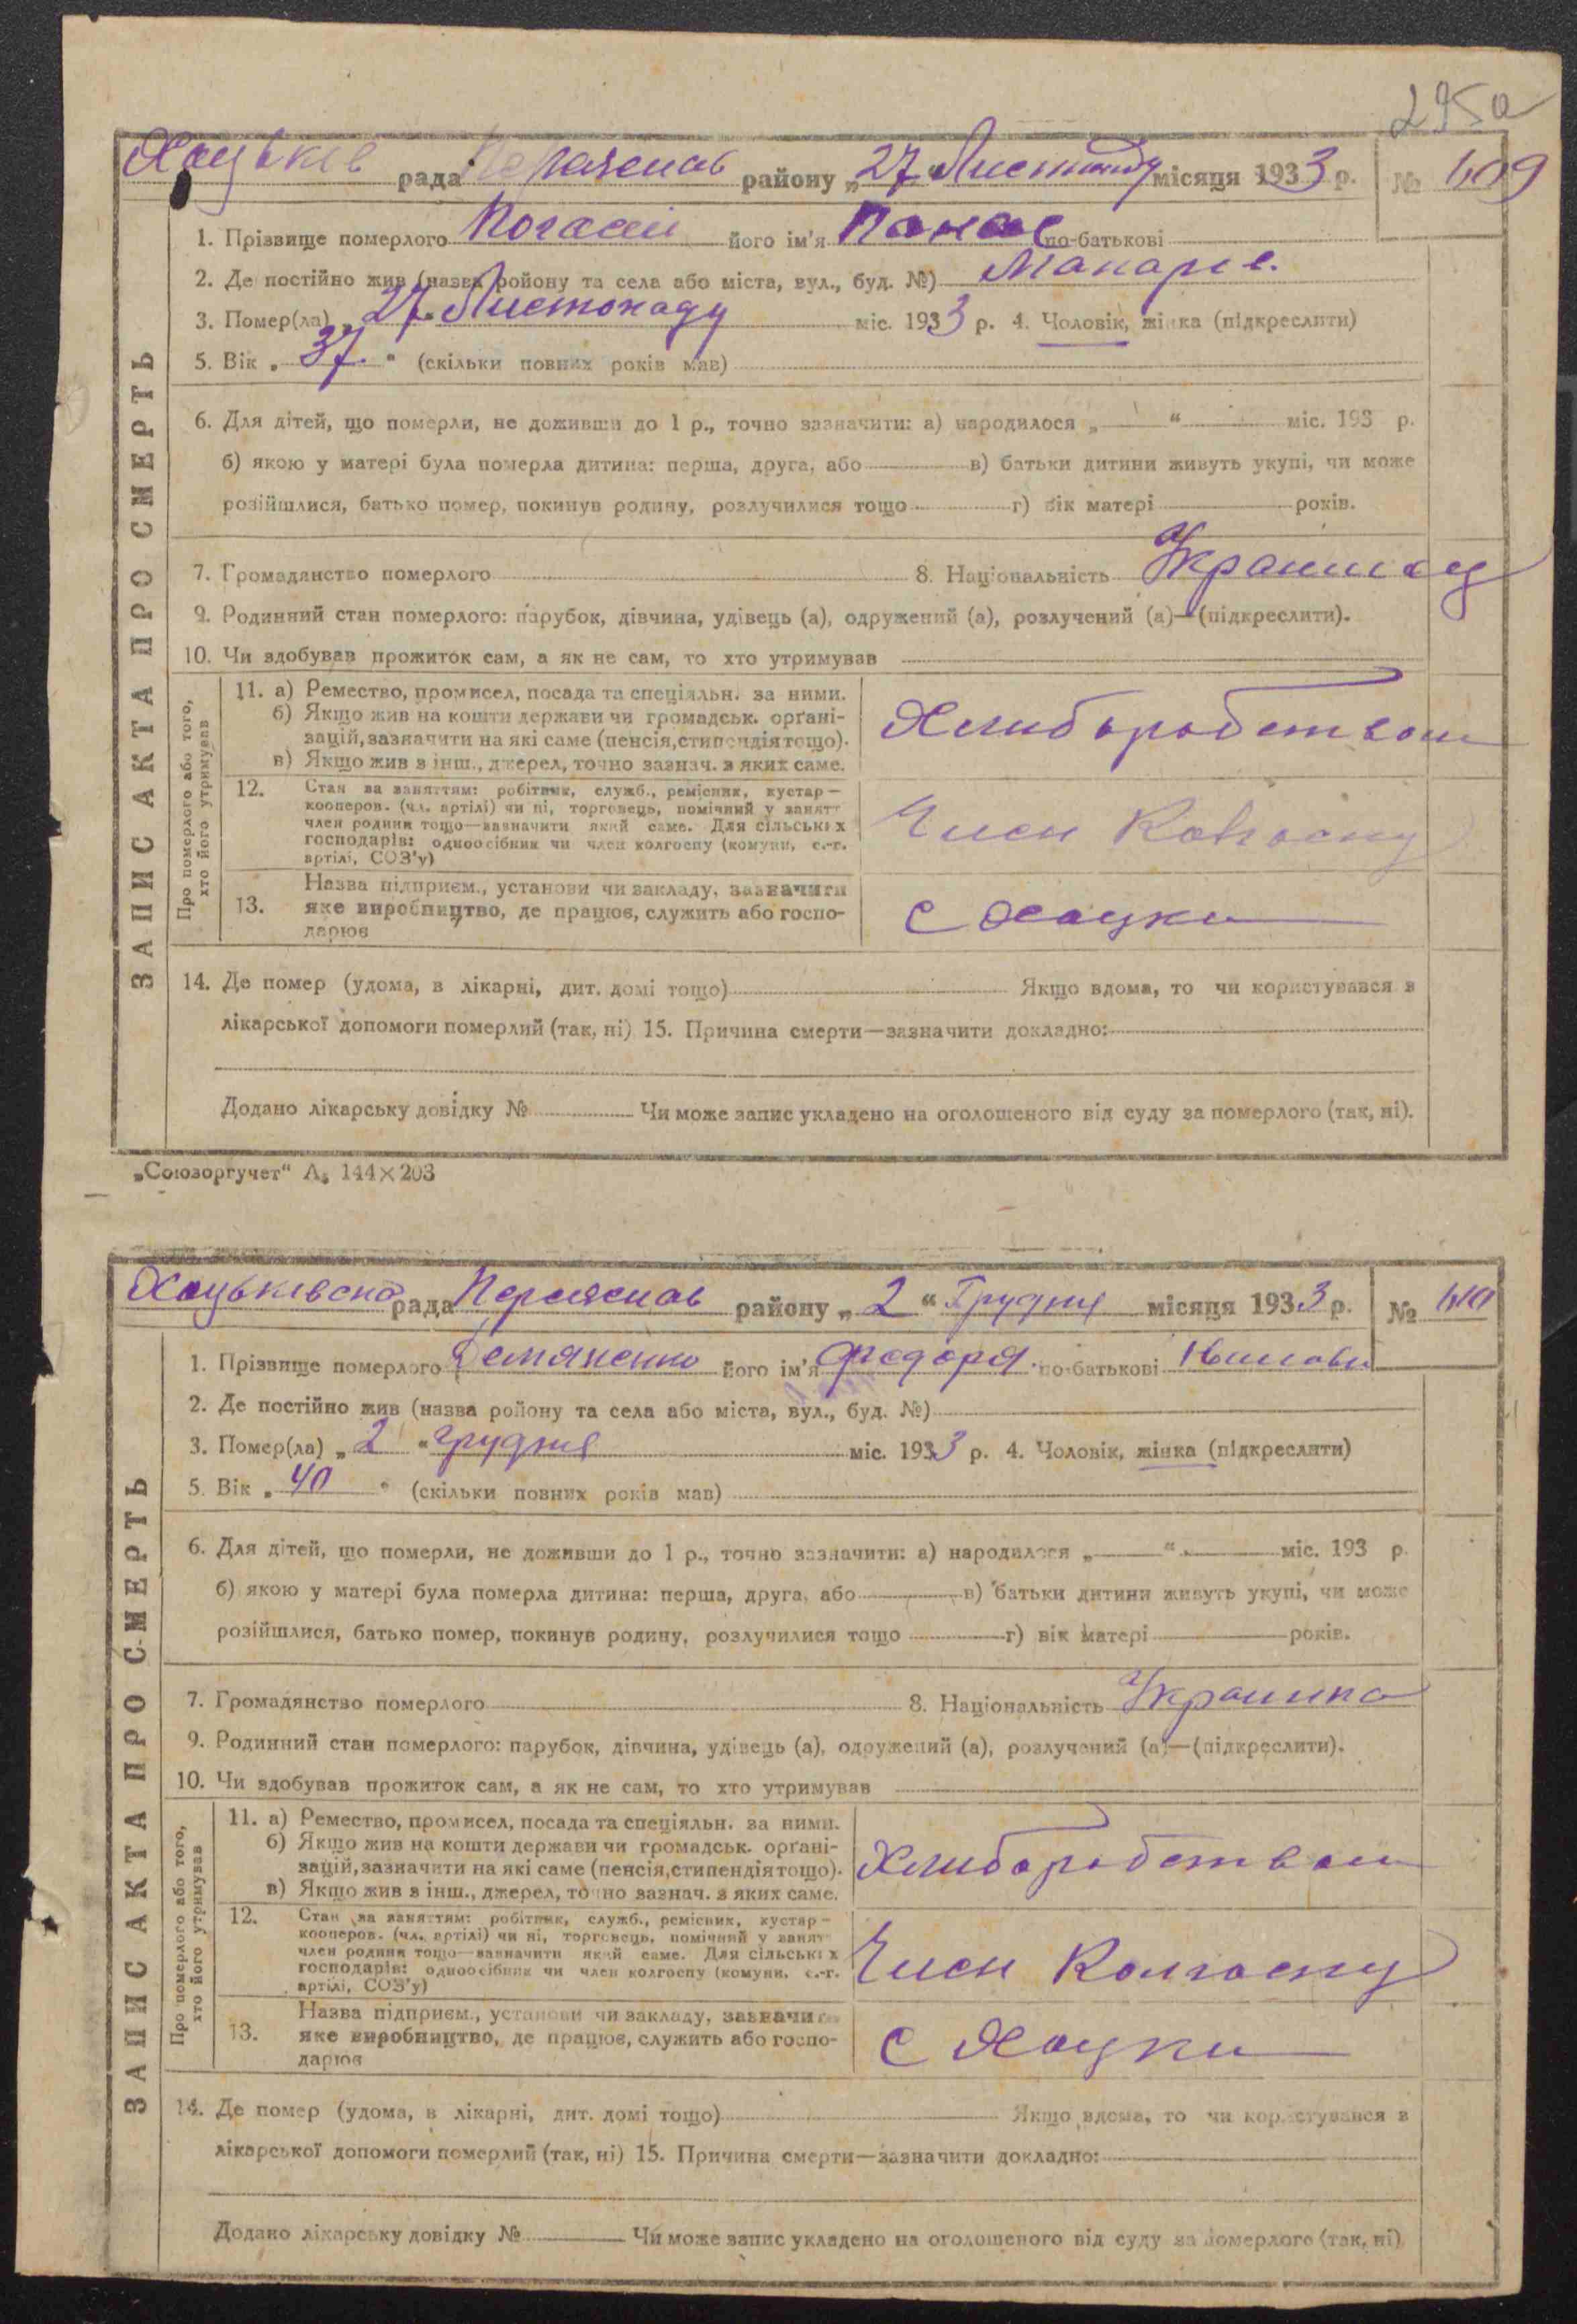 295а
Хацьків рада Переяслав району „27“ Листопаду місяця 1933 р. № 409
1. Прізвище померлого його ім'я Панас по-батькові
2. Де постійно жив (назва ройону та села або міста, вул., буд. №)
3. Помер(ла) „27“ Листопаду міс. 1933 р. 4. Чоловік, жінка (підкреслити)
5. Вік „37“ (скільки повних років мав)
6. Для дітей, що померли, не доживши до 1 р., точно зазначити: а) народилося „ “ міс. 193 р.
б) якою у матері була померла дитина: перша, друга, або в) батьки дитини живуть укупі, чи може
розійшлися, батько помер, покинув родину, розлучилися тощо г) вік матері років.
7. Громадянство померлого 8. Національність
9. Родинний стан померлого: парубок, дівчина, удівець (а), одружений (а), розлучений (а)—(підкреслити).
10. Чи здобував прожиток сам, а як не сам, то хто утримував
ЗАПИС АКТА ПРО СМЕРТЬ
Про померлого або того,
хто його утримував
11. а) Ремество, промисел, посада та спеціяльн. за ними.
б) Якщо жив на кошти держави чи громадськ. орґані-
зацій, зазначити на які саме (пенсія, стипендія тощо).
в) Якщо жив з інш., джерел, точно зазнач. з яких саме.
Хлиборобством
12. Стан за заняттям: робітник, служб., ремісник, кустар—
кооперов. (чл. артілі) чи ні, торговець, помічний у занятт
член родини тощо—зазначити який саме. Для сільських
господарів: одноосібник чи член колгоспу (комуни, с.-г.
артілі, СОЗ'у)
Член Колгоспу
13. Назва підприєм., установи чи закладу, зазначити
яке виробництво, де працює, служить або госпо-
дарює
с Хацки
14. Де помер (удома, в лікарні, дит. домі тощо) Якщо вдома, то чи користувався з
лікарської допомоги померлий (так, ні) 15. Причина смерти—зазначити докладно:
Додано лікарську довідку № Чи може запис укладено на оголошеного від суду за померлого (так, ні).
„Союзоргучет“ А₅ 144×203
Хацьківська рада Переяслав району „2“ Грудня місяця 1933 р. № 410
1. Прізвище померлого Демяненко його ім'я Федора по-батькові
2. Де постійно жив (назва ройону та села або міста, вул., буд. №)
3. Помер(ла) „2“ грудня міс. 1933 р. 4. Чоловік, жінка (підкреслити)
5. Вік „40“ (скільки повних років мав)
6. Для дітей, що померли, не доживши до 1 р., точно зазначити: а) народилося „ “ міс. 193 р.
б) якою у матері була померла дитина: перша, друга, або в) батьки дитини живуть укупі, чи може
розійшлися, батько помер, покинув родину, розлучилися тощо г) вік матері років.
7. Громадянство померлого 8. Національність Украинка
9. Родинний стан померлого: парубок, дівчина, удівець (а), одружений (а), розлучений (а)—(підкреслити).
10. Чи здобував прожиток сам, а як не сам, то хто утримував
ЗАПИС АКТА ПРО СМЕРТЬ
Про померлого або того,
хто його утримував
11. а) Ремество, промисел, посада та спеціяльн. за ними.
б) Якщо жив на кошти держави чи громадськ. орґані-
зацій, зазначити на які саме (пенсія, стипендія тощо).
в) Якщо жив з інш., джерел, точно зазнач. з яких саме.
Хлиборобством
12. Стан за заняттям: робітник, служб., ремісник, кустар—
кооперов. (чл. артілі) чи ні, торговець, помічний у занят
член родини тощо—зазначити який саме. Для сільських
господарів: одноосібник чи член колгоспу (комуни, с.-г.
артілі, СОЗ'у)
Член Колгоспу
13. Назва підприєм., установи чи закладу, зазначити
яке виробництво, де працює, служить або госпо-
дарює
с Хацки
14. Де помер (удома, в лікарні, дит. домі тощо) Якщо вдома, то чи користувався з
лікарської допомоги померлий (так, ні) 15. Причина смерти—зазначити докладно:
Додано лікарську довідку № Чи може запис укладено на оголошеного від суду за померлого (так, ні)